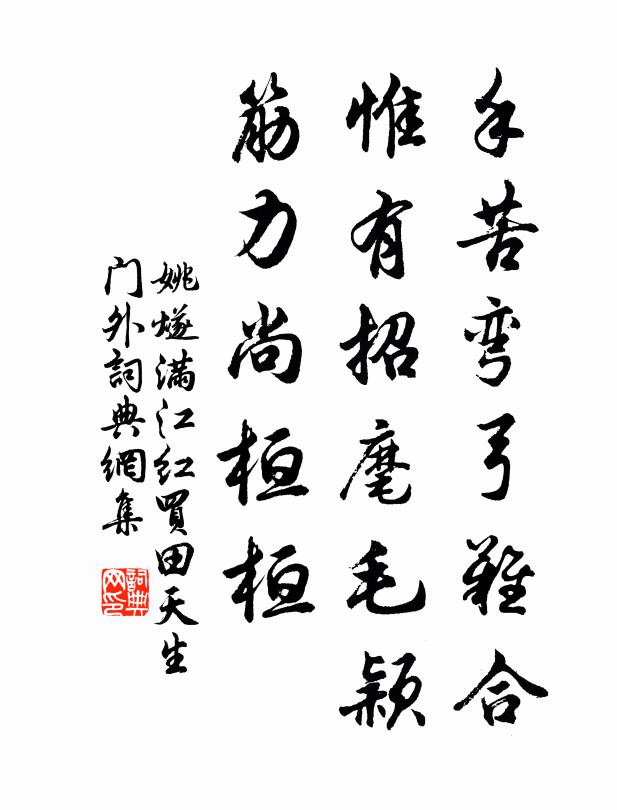 手苦弯弓難合
惟有招麾毛颖
筋力尚桓桓
姚燧满江红買田天生
门外詞典網集
詞典网印